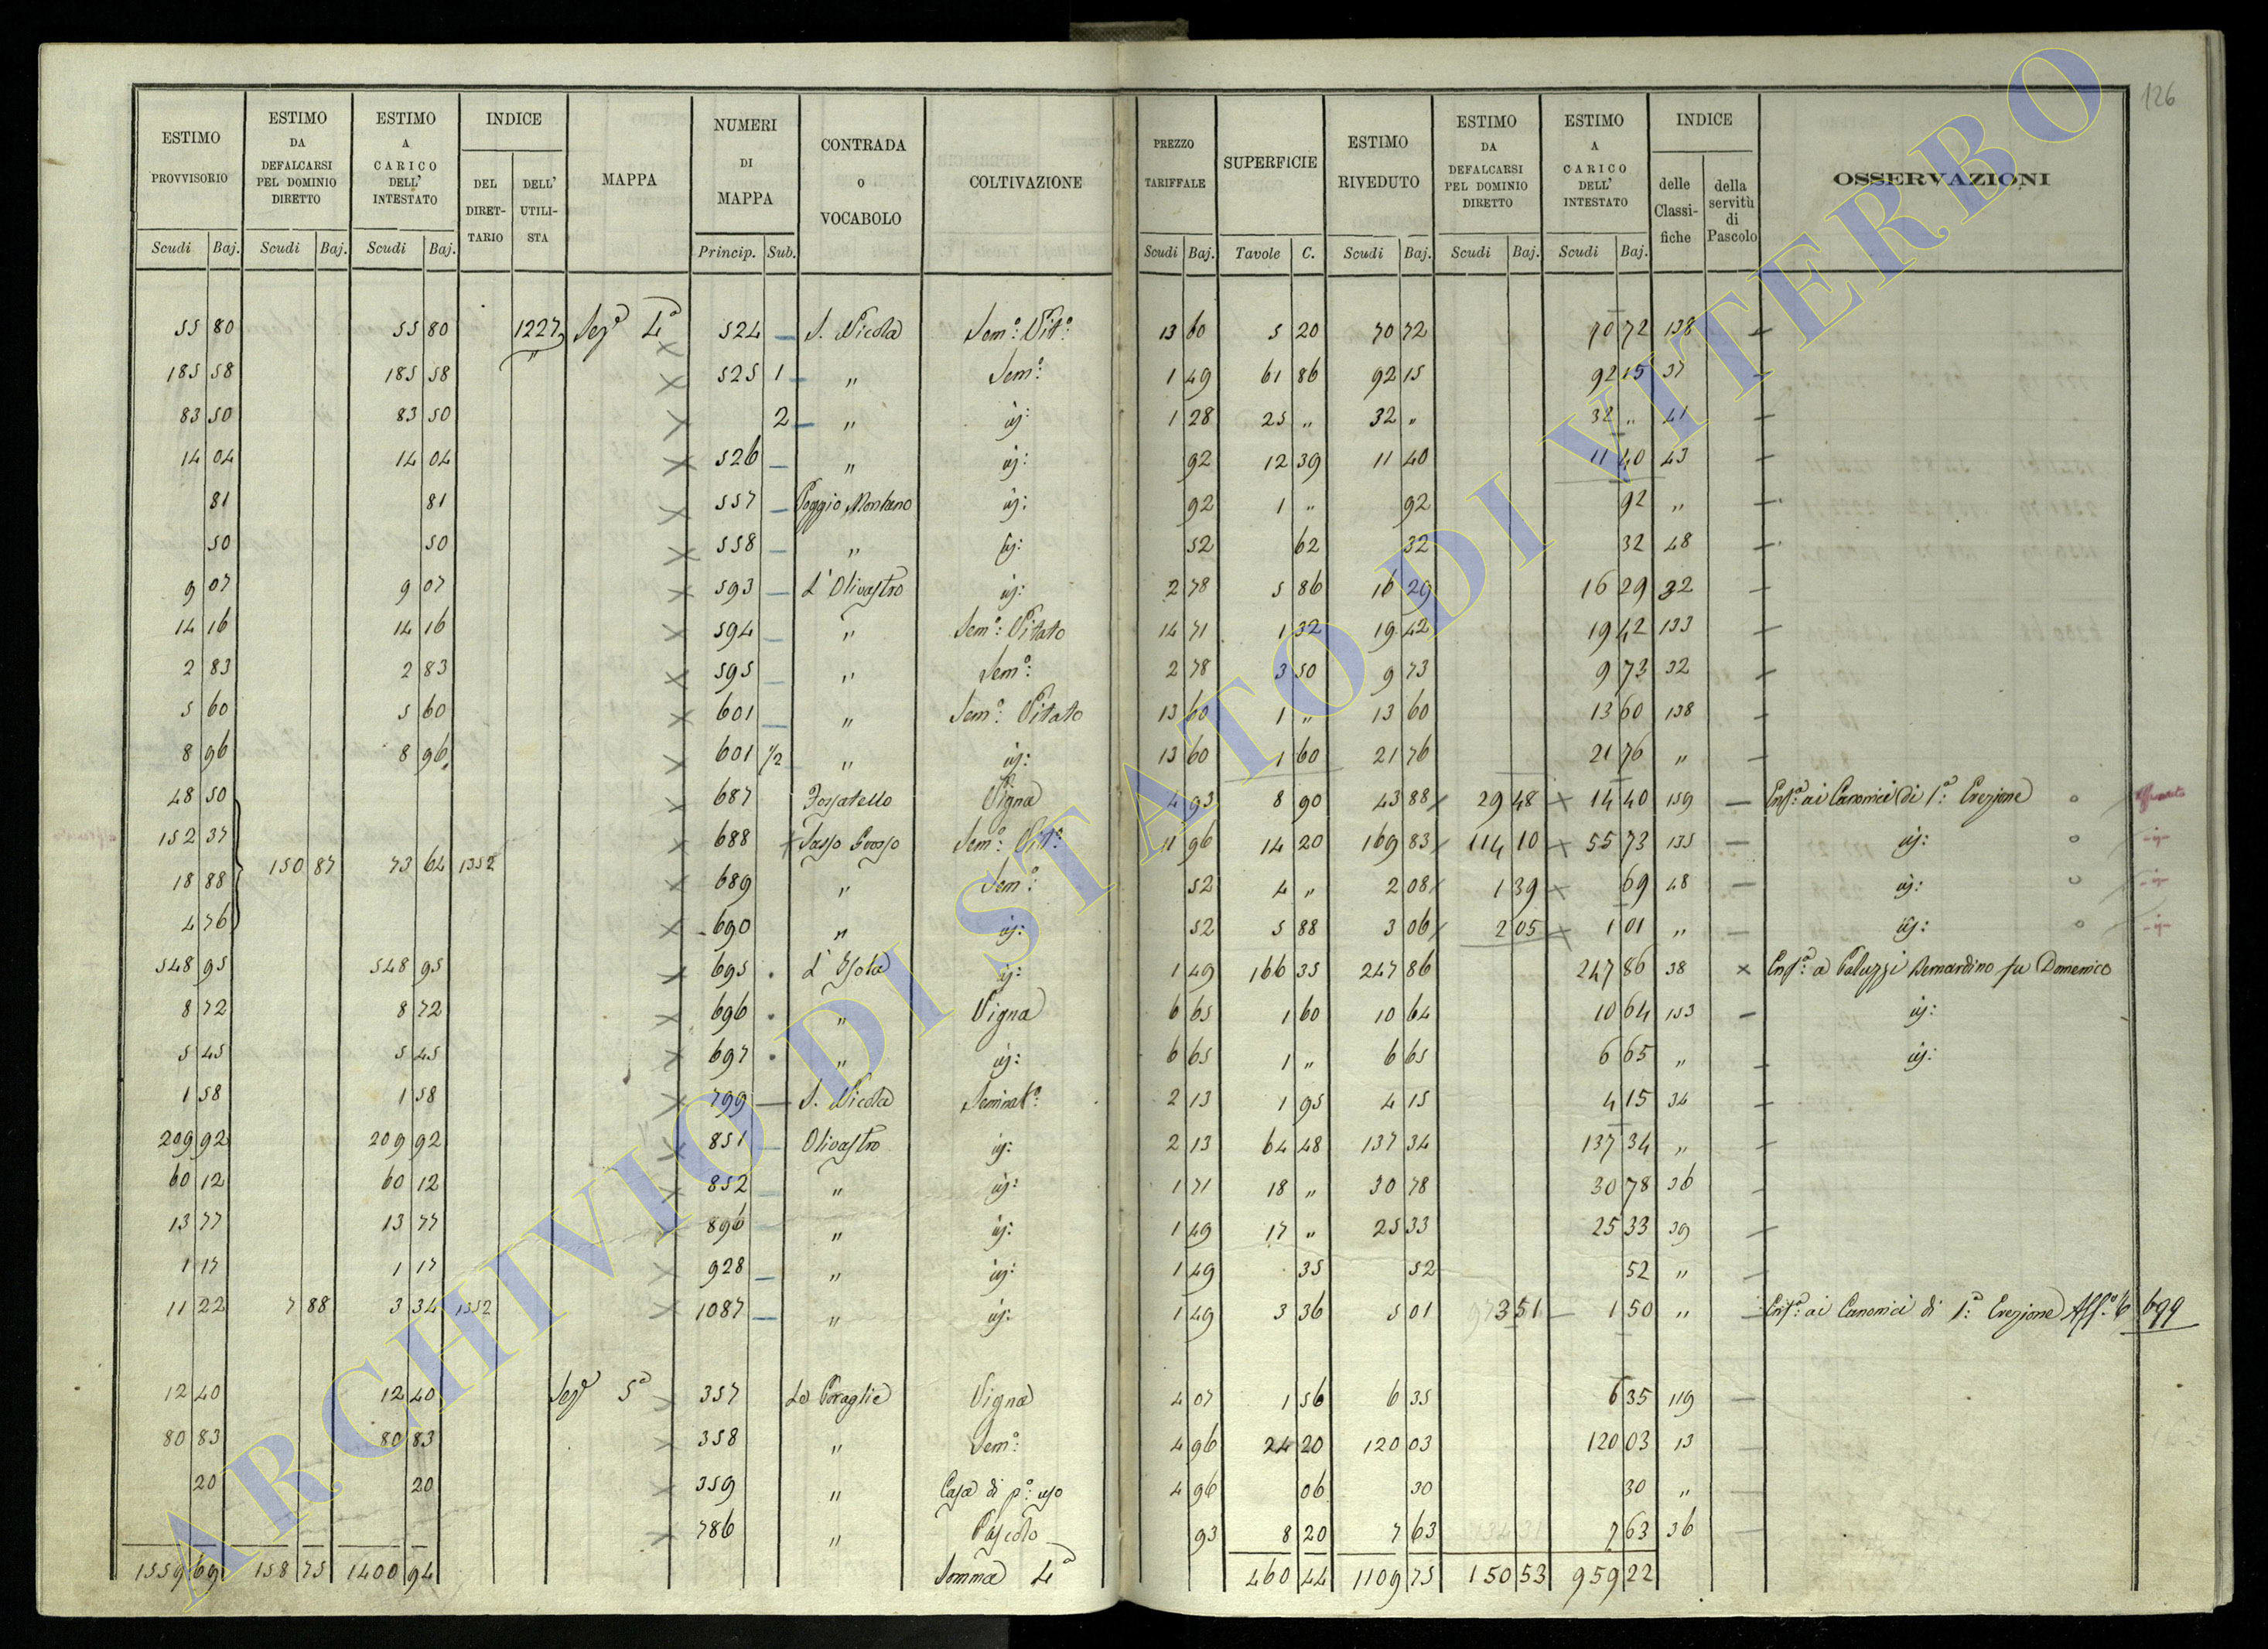 126
ESTIMO PROVVISORIO | ESTIMO DA DEFALCARSI PEL DOMINIO DIRETTO | ESTIMO A CARICO DELL' INTESTATO | INDICE | MAPPA | NUMERI DI MAPPA | CONTRADA O VOCABOLO | COLTIVAZIONE | PREZZO TARIFFALE | SUPERFICIE | ESTIMO RIVEDUTO | ESTIMO DA DEFALCARSI PEL DOMINIO DIRETTO | ESTIMO A CARICO DELL' INTESTATO | INDICE | OSSERVAZIONI
DEL DIRET-TARIO | DELL' UTILI-STA | delle Classi-fiche | della servitù di Pascolo
Scudi | Baj. | Scudi | Baj. | Scudi | Baj. | Princip. | Sub. | Scudi | Baj. | Tavole | C. | Scudi | Baj. | Scudi | Baj. | Scudi | Baj.
55 80 | 55 80 | 1227 | Sez.e 4a | 524 | S. Nicola | Sem.o Vit.o | 13 60 | 5 20 | 70 72 | 70 72 | 138
185 58 | 185 58 | 525 1 | " | Sem.o | 1 49 | 61 86 | 92 15 | 92 15 | 37
83 50 | 83 50 | 2 | " | id: | 1 28 | 25 " | 32 " | 32 " | 41
14 04 | 14 04 | 526 | " | id: | 92 | 12 39 | 11 40 | 11 40 | 43
81 | 81 | 557 | Poggio Montano | id: | 92 | 1 " | 92 | 92 | "
50 | 50 | 558 | " | id: | 52 | 62 | 32 | 32 | 48
9 07 | 9 07 | 593 | L'Olivastro | id: | 2 78 | 5 86 | 16 29 | 16 29 | 32
14 16 | 14 16 | 594 | " | Sem.o Vitato | 14 71 | 1 32 | 19 42 | 19 42 | 133
2 83 | 2 83 | 595 | " | Sem.o | 2 78 | 3 50 | 9 73 | 9 73 | 32
5 60 | 5 60 | 601 | " | Sem.o Vitato | 13 60 | 1 " | 13 60 | 13 60 | 138
8 96 | 8 96 | 601 1/2 | " | id: | 13 60 | 1 60 | 21 76 | 21 76 | "
48 50 | 687 | Fossatello | Vigna | 4 93 | 8 90 | 43 88 | 29 48 | 14 40 | 159 | Enf.a ai Canonici di 1a Erezione
152 37 | 688 | Sasso Grosso | Sem.o Vit.o | 11 96 | 14 20 | 169 83 | 114 10 | 55 73 | 135 | id:
150 87 | 73 64 | 1352
18 88 | 689 | " | Sem.o | 52 | 4 " | 2 08 | 1 39 | 69 | 48 | id:
4 76 | 690 | " | id: | 52 | 5 88 | 3 06 | 2 05 | 1 01 | " | id:
548 95 | 548 95 | 695 | L'Isola | id: | 1 49 | 166 35 | 247 86 | 247 86 | 38 | Enf.a a Paluzzi Bernardino fu Domenico
8 72 | 8 72 | 696 | " | Vigna | 6 65 | 1 60 | 10 64 | 10 64 | 153 | id:
5 45 | 5 45 | 697 | " | id: | 6 65 | 1 " | 6 65 | 6 65 | " | id:
1 58 | 1 58 | 799 | S. Nicola | Seminat.o | 2 13 | 1 95 | 4 15 | 4 15 | 34
209 92 | 209 92 | 851 | Olivastro | id: | 2 13 | 64 48 | 137 34 | 137 34 | "
60 12 | 60 12 | 852 | " | id: | 1 71 | 18 " | 30 78 | 30 78 | 36
13 77 | 13 77 | 896 | " | id: | 1 49 | 17 " | 25 33 | 25 33 | 39
1 17 | 1 17 | 928 | " | id: | 1 49 | 35 | 52 | 52 | "
11 22 | 7 88 | 3 34 | 1352 | 1087 | " | id: | 1 49 | 3 36 | 5 01 | 3 51 | 1 50 | " | Enf.a ai Canonici di 1a Erezione Aff.o 699
12 40 | 12 40 | Sez.e 5a | 357 | Le Poraglie | Vigna | 4 07 | 1 56 | 6 35 | 6 35 | 119
80 83 | 80 83 | 358 | " | Sem.o | 4 96 | 24 20 | 120 03 | 120 03 | 13
20 | 20 | 359 | " | Casa di p.o uso | 4 96 | 06 | 30 | 30 | "
786 | " | Pascolo | 93 | 8 20 | 7 63 | 7 63 | 36
1559 69 | 158 75 | 1400 94 | Somma 4a | 460 44 | 1109 75 | 150 53 | 959 22
ARCHIVIO DI STATO DI VITERBO